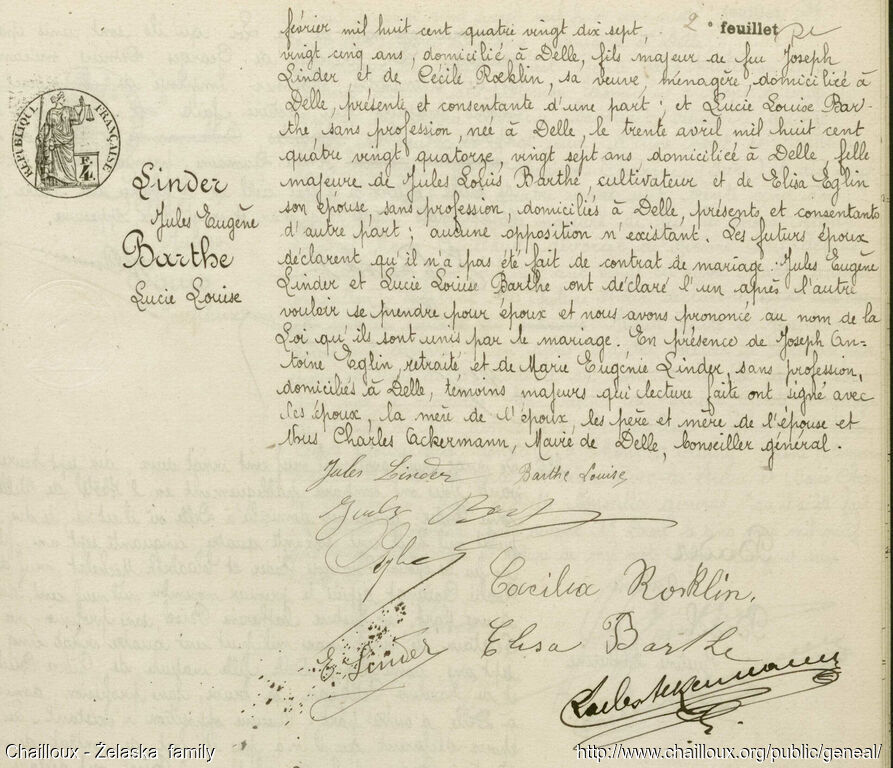 2e feuillet
février mil huit cent quatre vingt dix sept,
vingt cinq ans, domicilié à Delle, fils majeur de feu Joseph
Linder et de Cécile Rocklin, sa veuve, ménagère, domiciliée à
Delle, présente et consentante d'une part ; et Lucie Louise Bar-
the sans profession, née à Delle, le trente avril mil huit cent
quatre vingt quatorze, vingt sept ans, domiciliée à Delle, fille
majeure de Jules Louis Barthe, cultivateur et de Elisa Eglin
son épouse, sans profession, domiciliés à Delle, présents et consentants
d'autre part ; aucune opposition n'existant. Les futurs époux
déclarent qu'il n'a pas été fait de contrat de mariage. Jules Eugène
Linder et Lucie Louise Barthe ont déclaré l'un après l'autre
vouloir se prendre pour époux et nous avons prononcé au nom de la
Loi qu'ils sont unis par le mariage. En présence de Joseph An-
toine Eglin, retraité et de Marie Eugénie Linder, sans profession,
domiciliés à Delle, témoins majeurs qui lecture faite ont signé avec
les époux, la mère de l'époux, les père et mère de l'épouse et
Nous Charles Ackermann, Maire de Delle, Conseiller général.
RÉPUBLIQUE FRANÇAISE
Linder
Jules Eugène
Barthe
Lucie Louise
Jules Linder Barthe Louise
Cacilia Rocklin.
E. Linder
Elisa Barthe
Charles Ackermann
Chailloux - Żelaska family
http://www.chailloux.org/public/geneal/